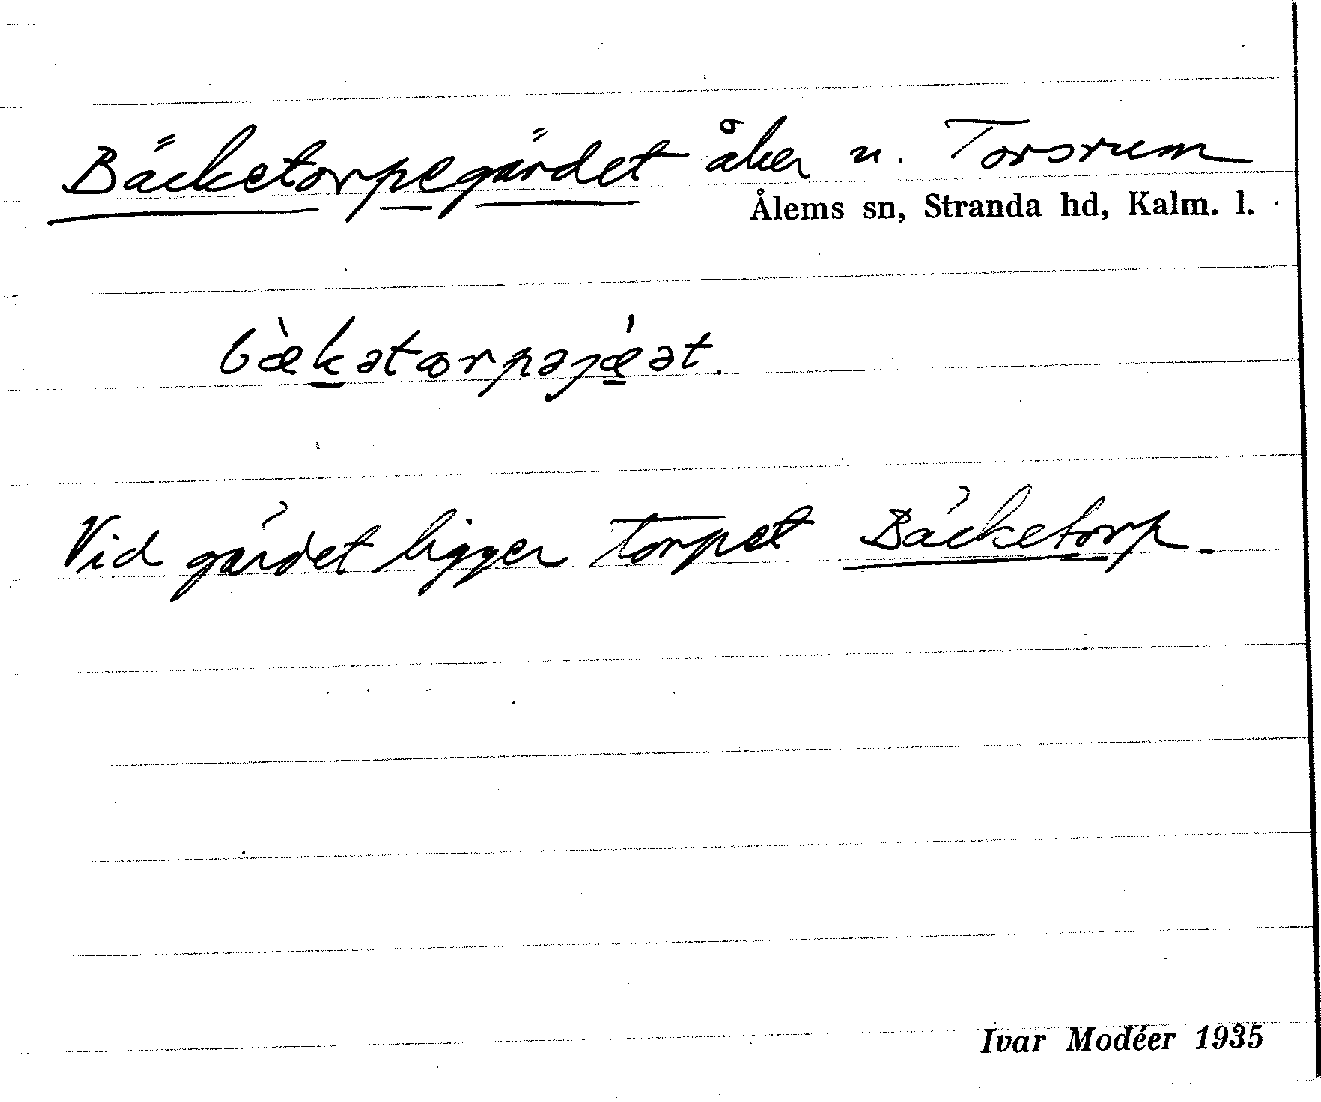 Bäcketorpegärdet åker u. Torsrum
Ålems sn, Stranda hd, Kalm. l.
bæ̀kətorpəjǽət.
Vid gärdet ligger torpet Bäcketorp.
Ivar Modéer 1935